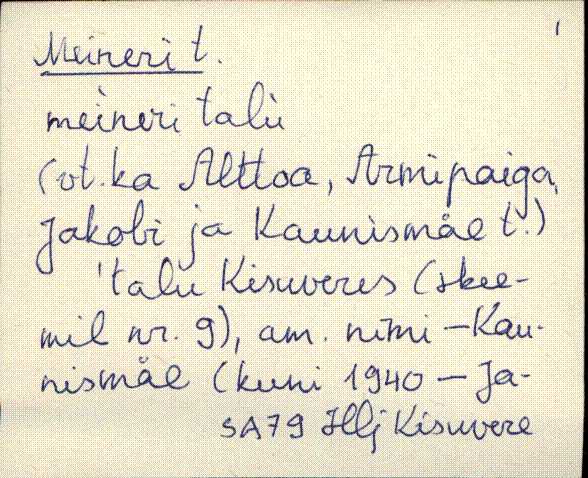 1
Meineri t.
meineri talu
(vt. ka Alttoa, Armipaiga,
Jakobi ja Kaunismäe t.)
'talu Kisuveres (skee-
mil nr. 9), am. nimi - Kau-
nismäe (kuni 1940 - Ja-
SA79 Hlj Kisuvere